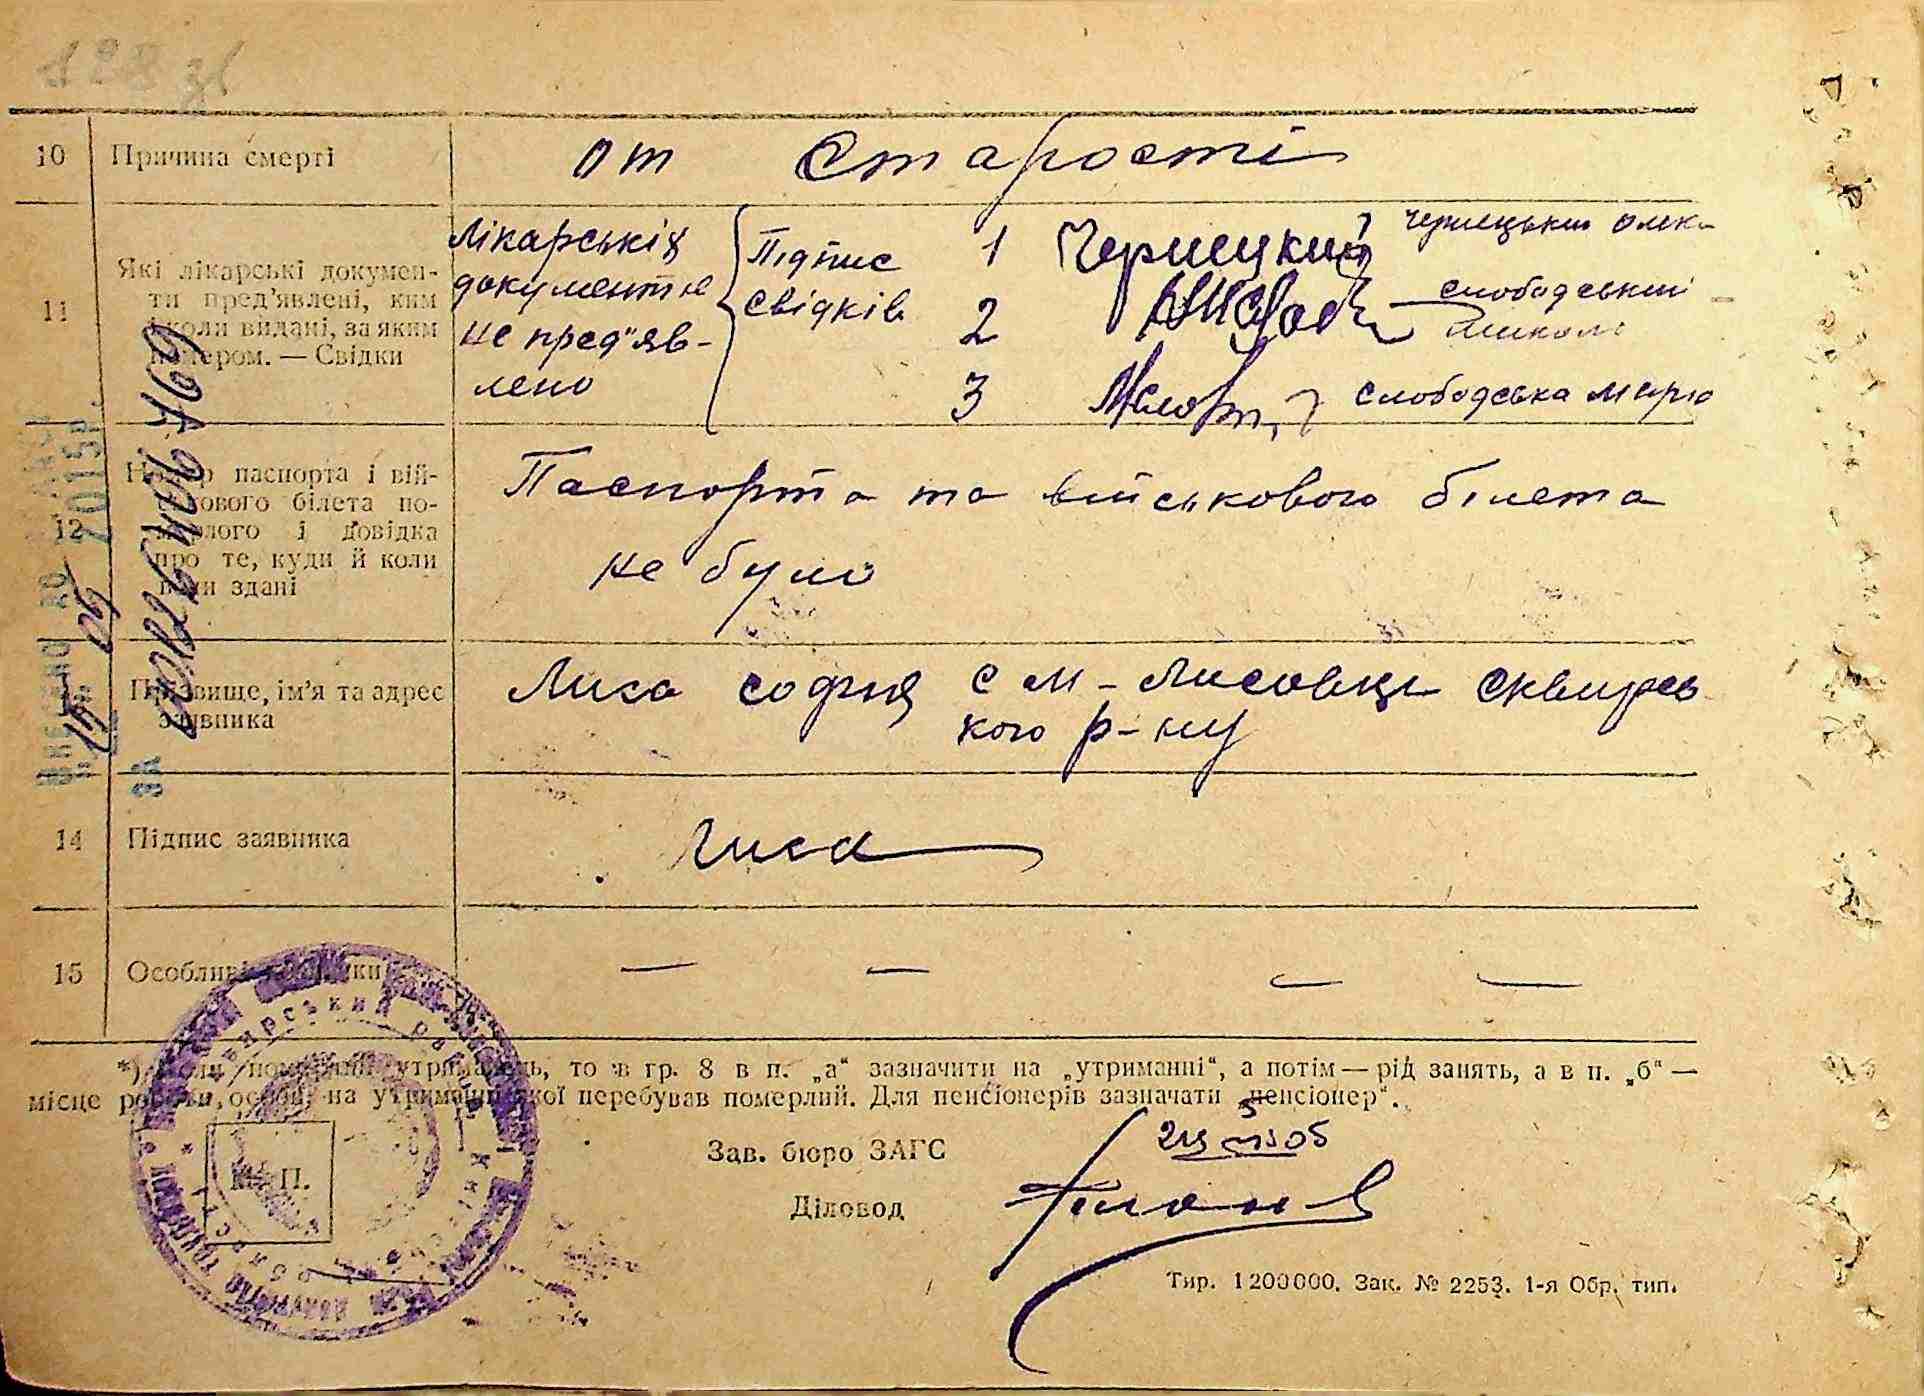 10 Причина смерті от старості
11 Які лікарські докумен-
ти пред'явлені, ким
і коли видані, за яким
номером. — Свідки
Лікарських
документів
не пред"яв-
лено
Підпис
свідків
1 Чернецкий Чернецький Олек.
2 Слободський
Микола
3 Слободська Марія
12 Номер паспорта і вій-
ськового білета по-
мерлого і довідка
про те, куди й коли
вони здані
Паспорта та військового білета
не було
Прізвище, ім'я та адрес
заявника
Лиса Софія с М-Лисовці Сквирсь
кого р-ну
14 Підпис заявника Лиса
15 Особливі — — — —
*) Коли померлий утриманець, то в гр. 8 в п. „а“ зазначити на „утриманні“, а потім — рід занять, а в п. „б“ —
місце роботи, особи, на утриманні якої перебував померлий. Для пенсіонерів зазначати „пенсіонер“.
Зав. бюро ЗАГС
Діловод
М. П.
Тир. 1200000. Зак. № 2253. 1-я Обр. тип.
2015р.
за